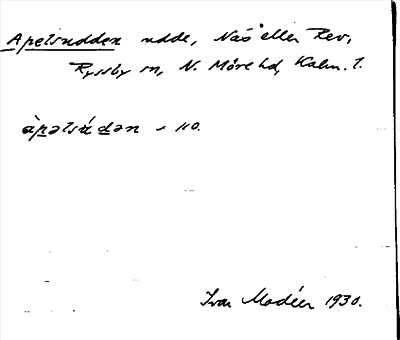 Apelsudden udde, Näs eller Rev,
Ryssby sn, N. Möre hd, Kalm. l.
àpəlsúdən - 110.
Ivar Modéer 1930.